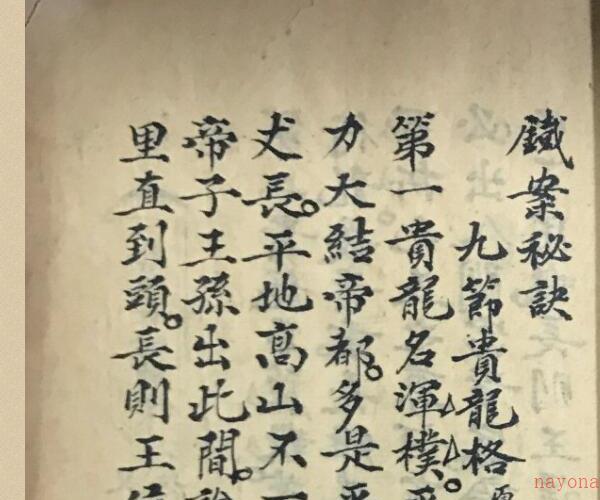 鐵案秘訣
九節貴龍格
第一貴龍名渾樸。
力大結帝都。多是
丈長。平地高山不
帝子王孫出此間。
里直到頭。長則王
nayona